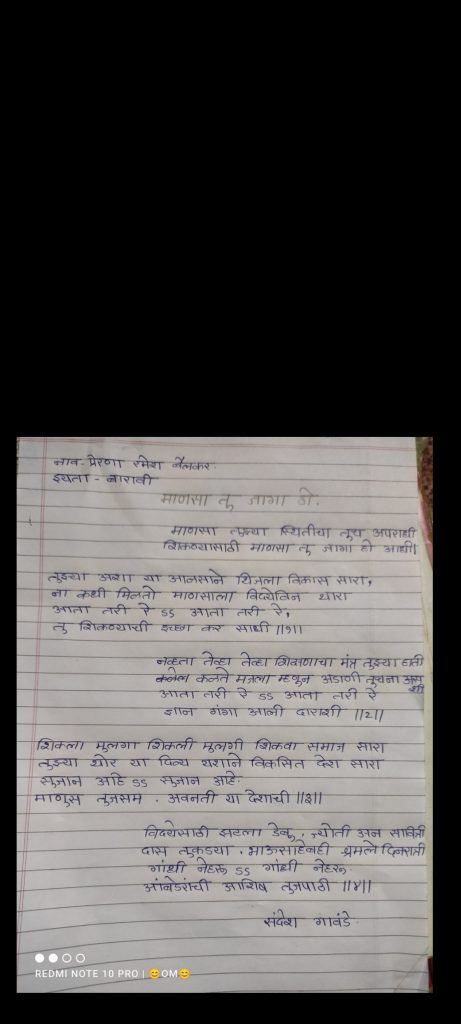 नाव - प्रेरणा रमेश बैलकर
इयत्ता - बारावी
माणसा तू जागा हो.
माणसा तुझ्या स्थितीचा तुच अपराधी
शिकण्यासाठी माणसा तू जागा हो आधी।
तुझ्या अशा या आळसाने थिजला विकास सारा,
ना कधी मिळतो माणसाला विद्येविन थारा
आता तरी रे ss आता तरी रे,
तु शिकण्याची इच्छा कर साधी ||१||
नव्हता तेव्हा तेव्हा शिक्षणाचा मंत्र तुझ्या हाती
कळते मजला म्हणून अडाणी तुचना
आता तरी रे ss आता तरी रे
ज्ञान गंगा आली दाराशी ||2||
शिकला मुलगा शिकली मुलगी शिकवा समाज सारा
तुझ्या थोर या दिव्य यशाने विकसित देश सारा
सुजान आहे ss सुजान आहे.
माणुस तुजसम . अवनती या देशाची ||३||
विद्येसाठी झटला . ज्योती अन सावित्री
दास तुकड्या . भाऊसाहेबही श्रमले दिनराती
गांधी नेहरू ss गांधी नेहरू
आंबेडरांची आशिष तुजपाठी ||४||
संदेश गावंडे
REDMI NOTE 10 PRO | 😊OM😊